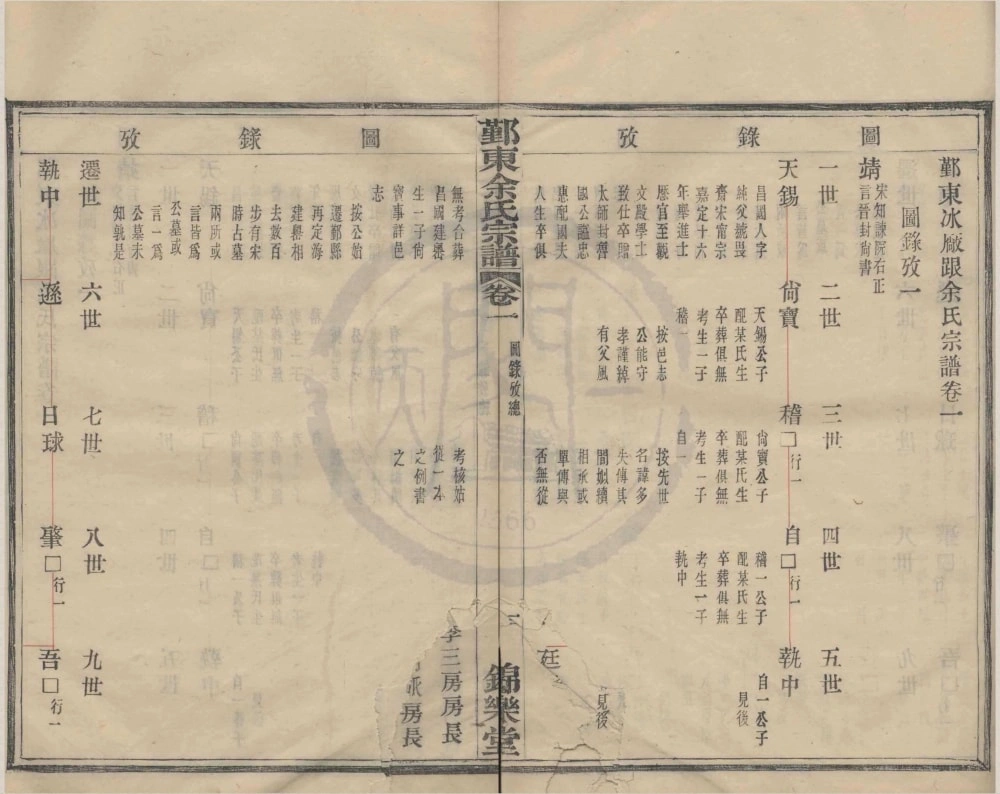 鄞東冰廠跟余氏宗譜卷一
圖錄攷一
圖錄攷
靖
宋知諫院右正
言晉封尙書
一世
二世
三世
四世
五世
天錫
昌國人字
純父號畏
齋宋甯宗
嘉定十六
年舉進士
歷官至觀
文殿學士
致仕卒贈
太師封晉
國公謚忠
惠配國夫
人生卒俱
無考合葬
昌國建嶴
生一子尙
寶事詳邑
志
按公始
遷鄞縣
再定海
建嶴相
去數百
步有宋
時古墓
兩所或
言皆爲
公墓或
言一爲
公墓未
知孰是
尙寶
天錫公子
配某氏生
卒葬俱無
考生一子
稽一
按邑志
公能守
孝謹綽
有父風
稽□行一
尙寶公子
配某氏生
卒葬俱無
考生一子
自一
按先世
名諱多
失傳其
間姒續
相承或
單傳與
否無從
考核姑
從一本
之例書
之
自□行一
稽一公子
配某氏生
卒葬俱無
考生一子
執中
執中
自一公子
見後
廷
見後
李三房房長
房長
鄞東余氏宗譜
卷一
圖錄攷總
一
錦樂堂
圖錄攷
遷世
六世
七世
八世
九世
執中
遜
日球
肇□行一
吾□行一